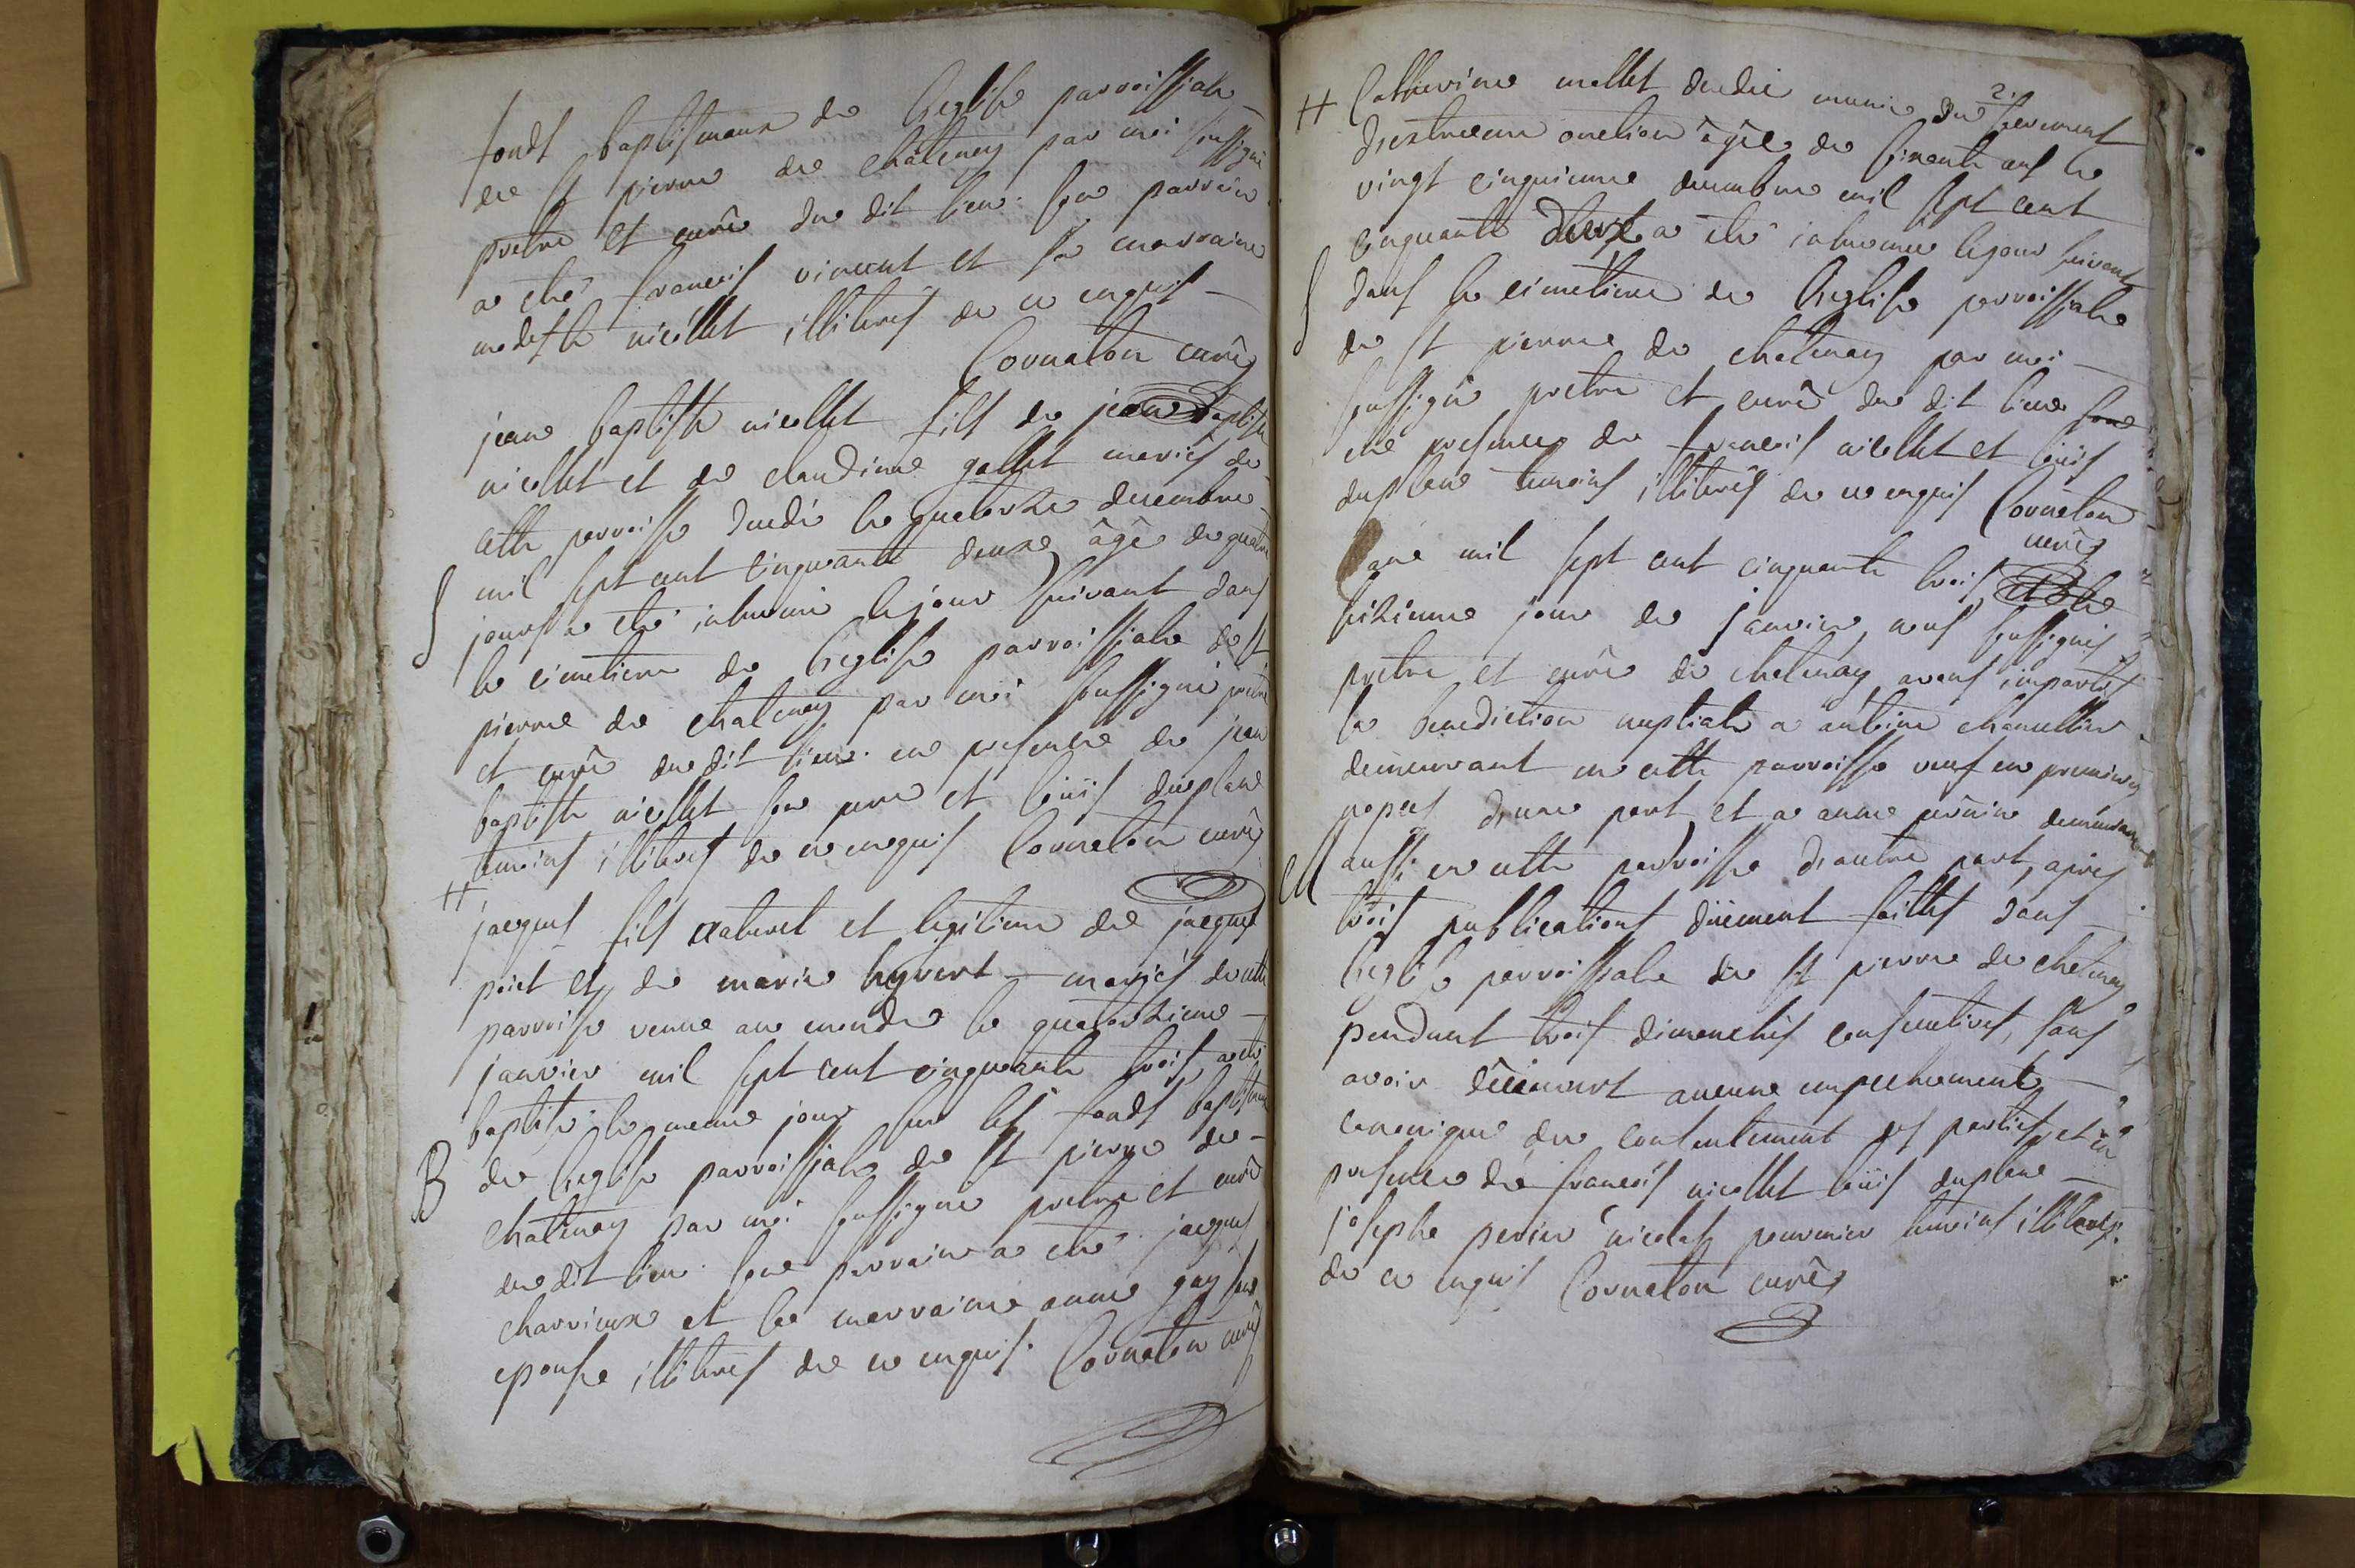 fondt baptismaux de l'eglise parroissiale
de st pierre de châtenay par moi soussigné
pretre et curê du dit lieu. son parrain
a eté francois vincent et sa marraine
modeste nicollet illiterés de ce enquis
Cornaton curê
jean baptiste nicollet fils de jean baptiste
nicollet et de claudine gallet mariés de
cette parroisse decedé le quatorze decembre
mil sept cent cinquante deux âgé de quatre
S jours a eté inhumé le jour suivant dans
le cimetiere de l'eglise parroissiale de st
pierre de chatenay par moi soussigné pretre
et curê du dit lieu. en presence de jean
baptiste nicollet son pere et loüis duplane
temoins illiterés de ce enquis Cornaton curê
H
jacques fils naturel et legitime de jacques
poict et de marie hyvert mariés de cette
parroisse venue au monde le quatorzieme
janvier mil sept cent cinquante trois a eté
baptisé le meme jour sur les fondt baptismaux
B de l'eglise parroissiale de st pierre de
chatenay par moi soussigné pretre et curê
du dit lieu. son parrain a eté jacques
charvieux et la marraine anne gay son
epouse illiterés de ce enquis. Cornaton curê
2.
H Catherine mollet decedée munie du sacrement
d'extreme onction âgée de soixante ans le
vingt cinquieme decembre mil sept cent
cinquante deux a eté inhumée le jour suivant
S dans le cimetiere de l'eglise parroissiale
de st pierre de chatenay par moi
soussigné pretre et curê du dit lieu son
en presence de francois nicollet et loüis
duplane temoins illiterés de ce enquis Cornaton
curê
L'ane mil sept cent cinquante trois et le
seizieme jour de janvier, nous soussignés
pretre et curê de chatenay avons imparti
la benediction nuptiale a antoine chanellier
demeurant en cette parroisse veuf en premieres
nopces d'une part et a anne demeurant
M aussi en cette parroisse d'autre part, apres
trois publications düement faittes dans
l'eglise parroissiale de st pierre de chatenay
pendant trois dimanches consecutives, sans
avoir decouvert aucune empechement
canonique du consentement des parties, et en
presence de francois nicollet loüis duplane
josephe perier nicolas pourunier temoins illiterés.
de ce enquis Cornaton curê